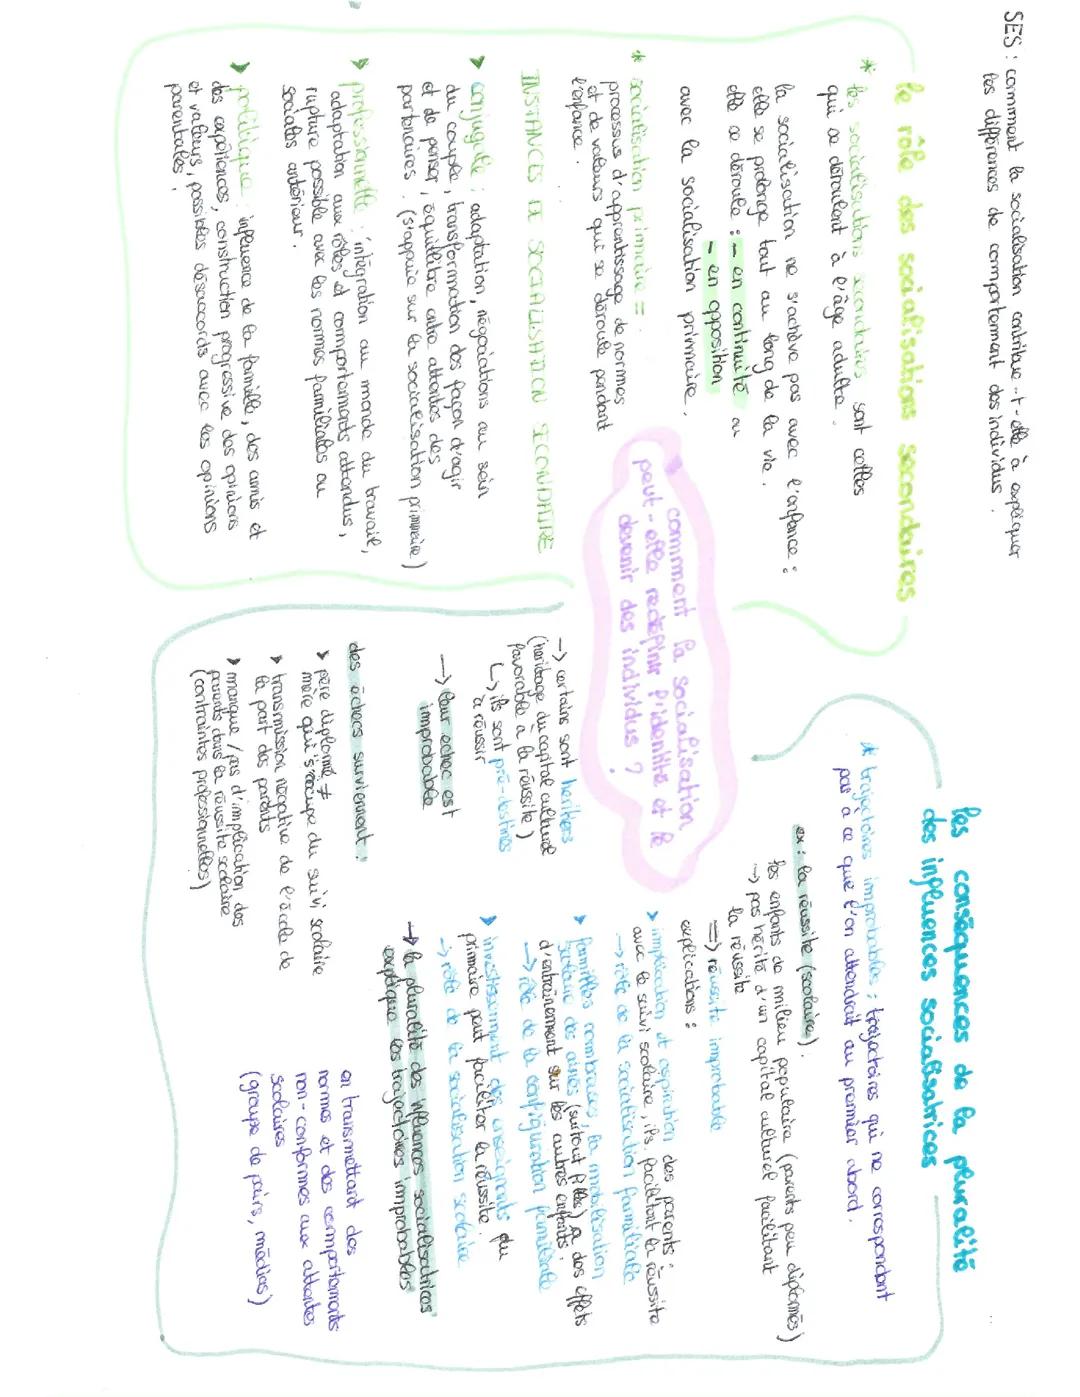 SES : comment la socialisation contribue-t-elle à expliquer
les différences de comportement des individus.
le rôle des socialisations secondaires
* les socialisations secondaires sont celles
qui se déroulent à l'âge adulte.
la socialisation ne s'achève pas avec l'enfance :
elle se prolonge tout au long de la vie.
elle se déroule : - en continuité ou
- en opposition
avec la socialisation primaire.
* socialisation primaire =
processus d'apprentissage de normes
et de valeurs qui se déroule pendant
l'enfance.
INSTANCES DE SOCIALISATION SECONDAIRE
➤ conjugale : adaptation, négociations au sein
du couple, transformation des façon d'agir
et de penser, équilibre entre attentes des
partenaires. (s'appuie sur la socialisation primaire)
➤ professionnelle : intégration au monde du travail,
adaptation aux rôles et comportements attendus,
rupture possible avec les normes familiales ou
sociales antérieur.
➤ politique : influence de la famille, des amis et
des expériences, construction progressive des opinions
et valeurs, possibles désaccords avec les opinions
parentales.
comment la socialisation
peut-elle redéfinir l'identité et le
devenir des individus ?
les conséquences de la pluralité
des influences socialisatrices
* trajectoires improbables : trajectoires qui ne correspondent
pas à ce que l'on attendrait au premier abord.
ex : la réussite (scolaire).
les enfants de milieu populaire (parents peu diplomés)
-> pas hérité d'un capital culturel facilitant
la réussite
=> réussite improbable
explications :
➤ implication et aspiration des parents :
avec le suivi scolaire, ils facilitent la réussite
-> rôle de la socialisation familiale
➤ familles nombreuses, la mobilisation
scolaire des aînés (surtout filles) a des effets
d'entraînement sur les autres enfants.
-> rôle de la configuration familiale
➤ investissement des enseignants du
primaire peut faciliter la réussite.
-> rôle de la socialisation scolaire
-> la pluralité des influences socialisatrices
explique les trajectoires improbables
-> certains sont heritiers
(heritage du capital culturel
favorable à la réussite)
↳ ils sont pré-destinés
à réussir
-> leur echec est
improbable
des échecs surviennent :
➤ père diplomé ≠
mère qui s'occupe du suivi scolaire
➤ transmission négative de l'école de
la part des parents
➤ manque / pas d'implication des
parents dans la réussite scolaire
(contraintes professionnelles)
en transmettant des
normes et des comportements
non-conformes aux attentes
scolaires
(groupe de pairs, médias)